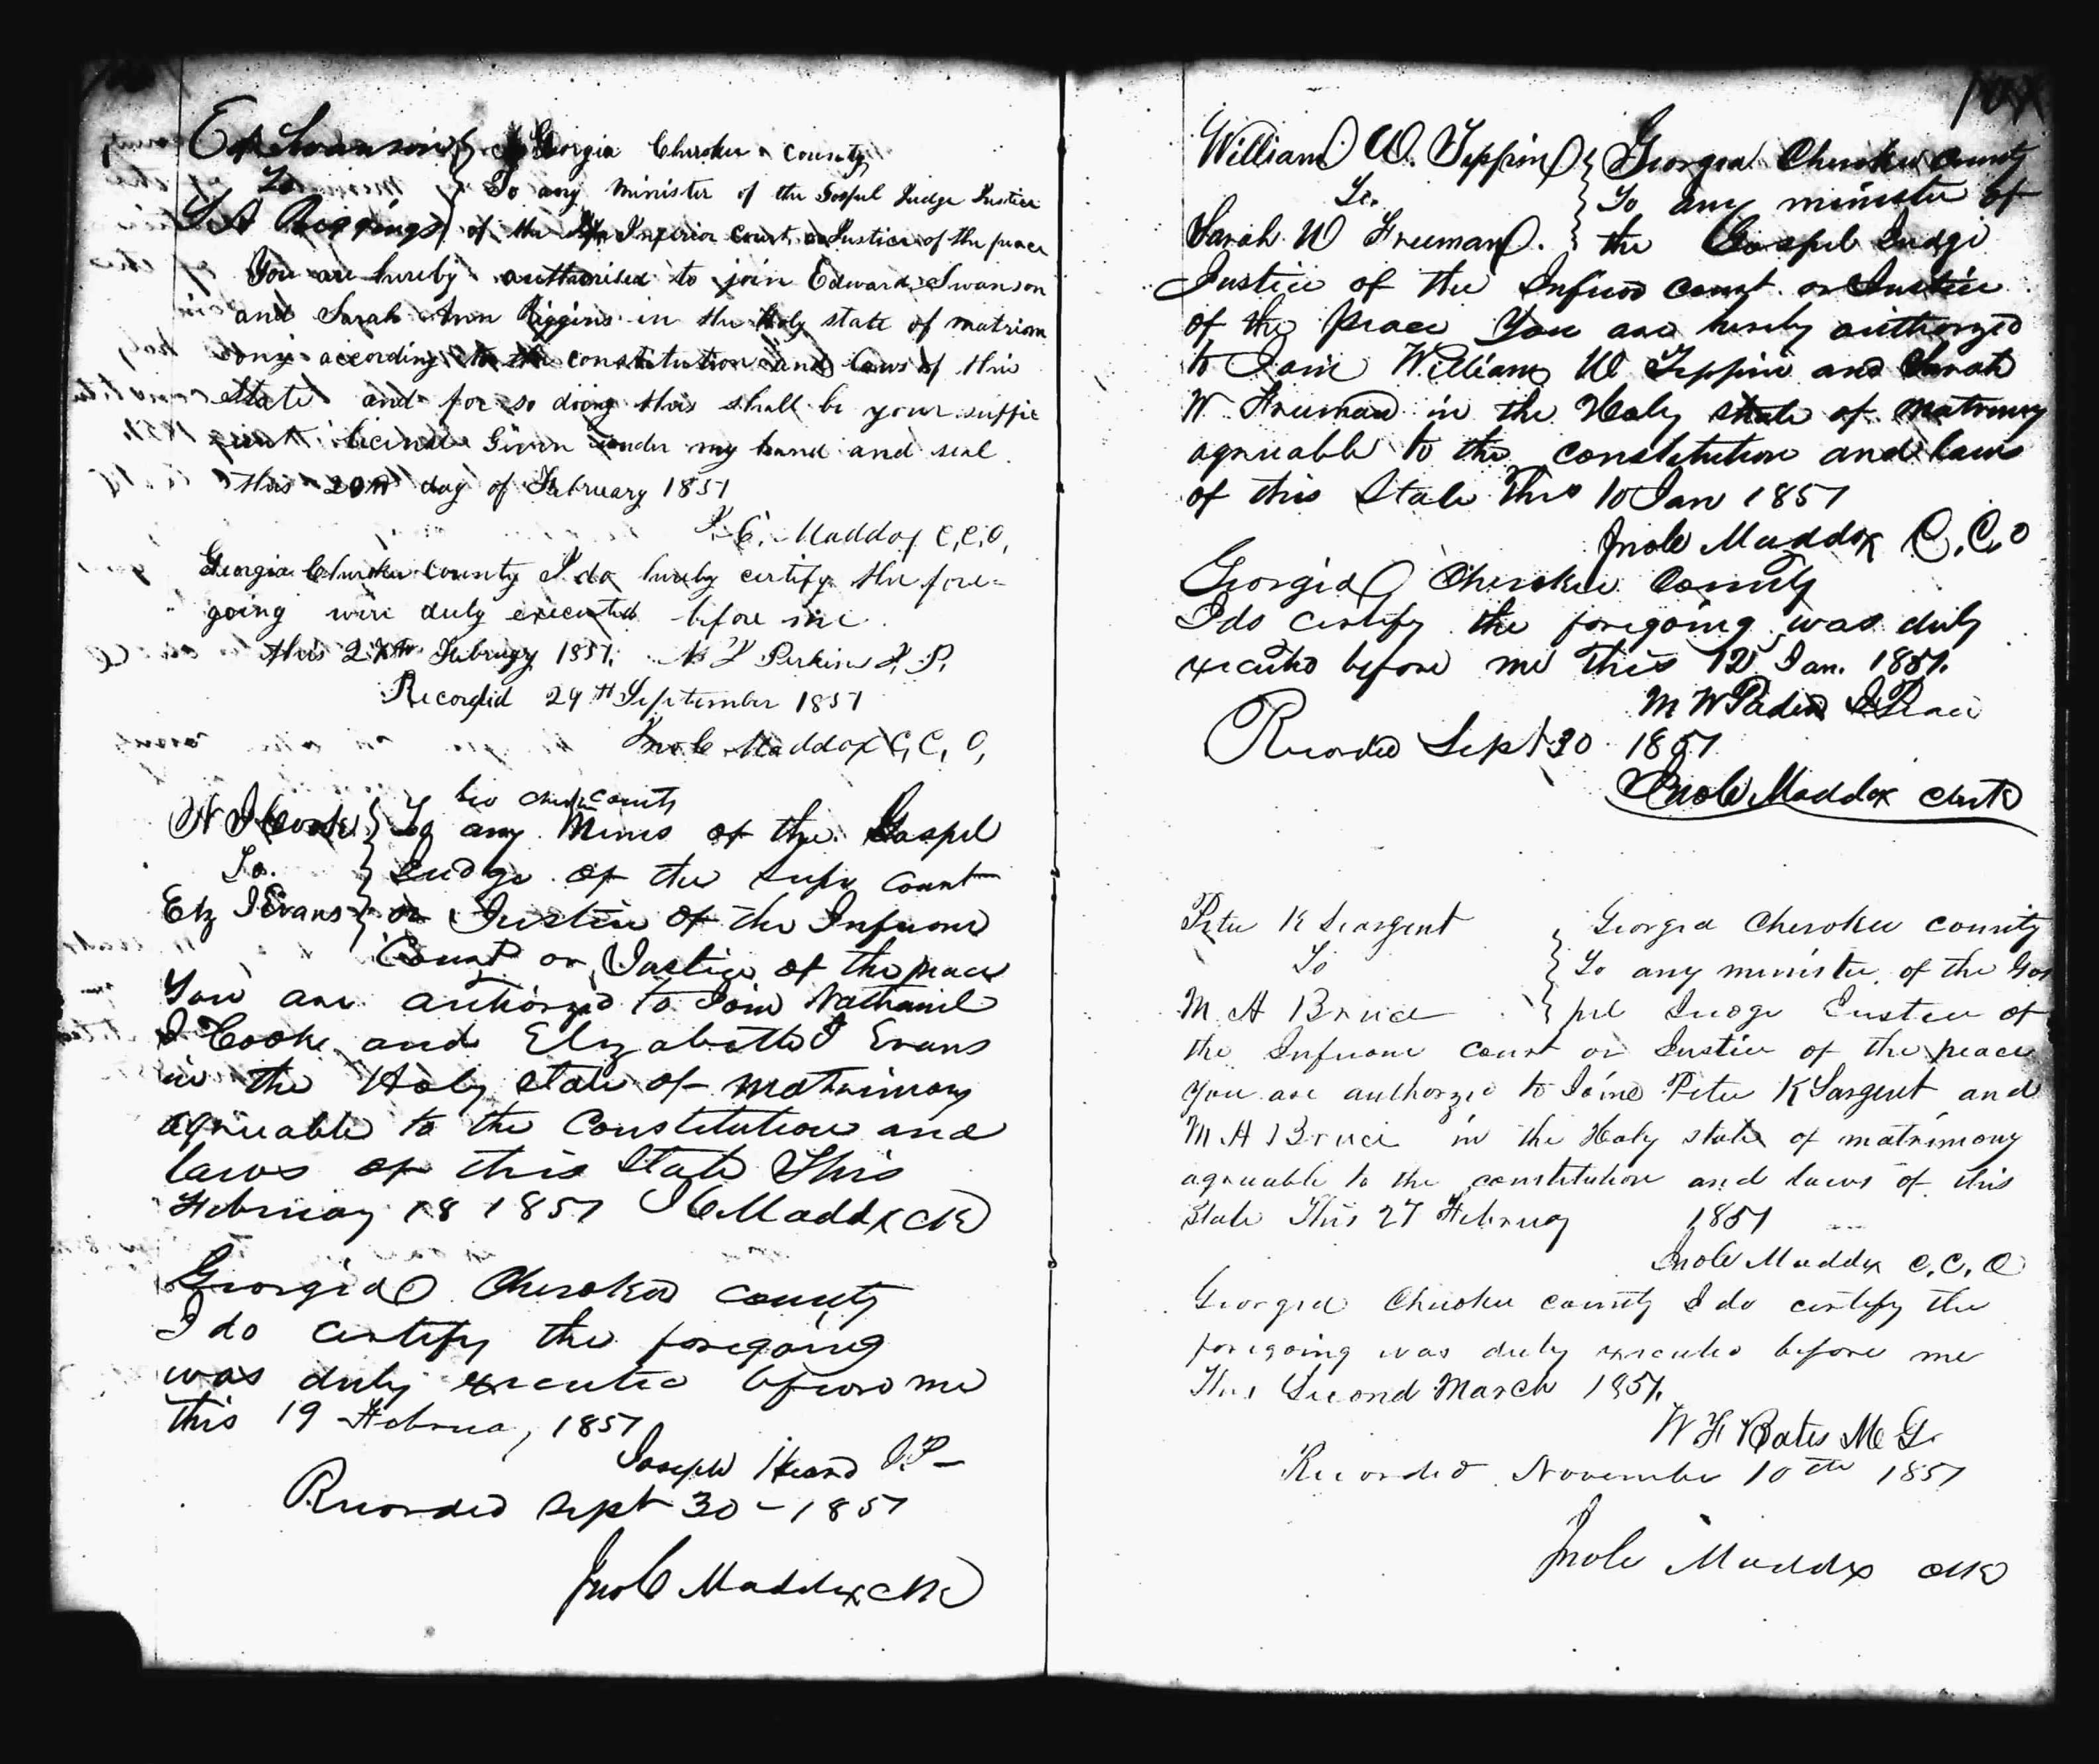 Ed Swanson } Georgia Cherokee county
To } To any minister of the Gospel Judge Justice
S A Riggings } of the Inferior Court or Justice of the peace
You are hereby authorised to join Edward Swanson
and Sarah Ann Riggins in the Holy state of matrim
ony according to the constitution and laws of this
State and for so doing this shall be your suffic
ient license Given under my hand and seal
this 20th day of February 1857
J. C. Maddox C.C.O.
Georgia Cherokee county I do hereby certify the fore-
going were duly executed before me
this 27th Februgy 1857. Perkins J. P.
Recorded 29th September 1857
Jno C Maddox C, C, O,
Geo county
N J Cook } To any Minis of the Gospel
To. } Judge of the supr Court
Elz J Evans } or Justice of the Inferior
Court or Justice of the peace
You are authorzed to Join Nathaniel
J Cook and Elizabeth J Evans
in the Holy state of matrimony
agreeable to the Constitution and
laws of this State This
February 18 1857 J C Maddx Clk
Georgia Cherokee county
I do certify the foregoing
was duly executed before me
this 19 Februa, 1857
Joseph Heard J.P-
Recorded sept 30-1857
Jno C Maddox Clk
William W. Teppin } Georgia Cherokee County
To. } To any minister of
Sarah W Freeman. } the Gospel Judge
Justice of the Inferior court or Justice
of the peace You are hereby authorzed
to Join William W Teppin and Sarah
W Freeman in the Holy state of Matrimony
agreeable to the constitution and laws
of this State This 10 Jan 1857
Jno C Maddox C.C.O
Georgia Cherokee County
I do certify the foregoing was duly
xecuted before me this 12 Jan. 1857.
M W Paden J Peace
Recorded Sept 30 1857
Jno C Maddox Clerk
Peter K Seargent } Georgia Cherokee county
To } To any minister of the Gos
M. A Bruce } pel Judge Justice of
the Inferior court or Justice of the peace
you are authorzed to Joine Peter K Sargent and
M A Bruce in the Holy state of matrimony
agreeable to the constitution and laws of this
State This 27 Februay 1857
Jno C Maddox C.C.O
Georgia Cherokee county I do certify the
foregoing was duly executed before me
This Second March 1857.
W F Bates M G.
Recorded November 10th 1857
Jno C Maddx Clk